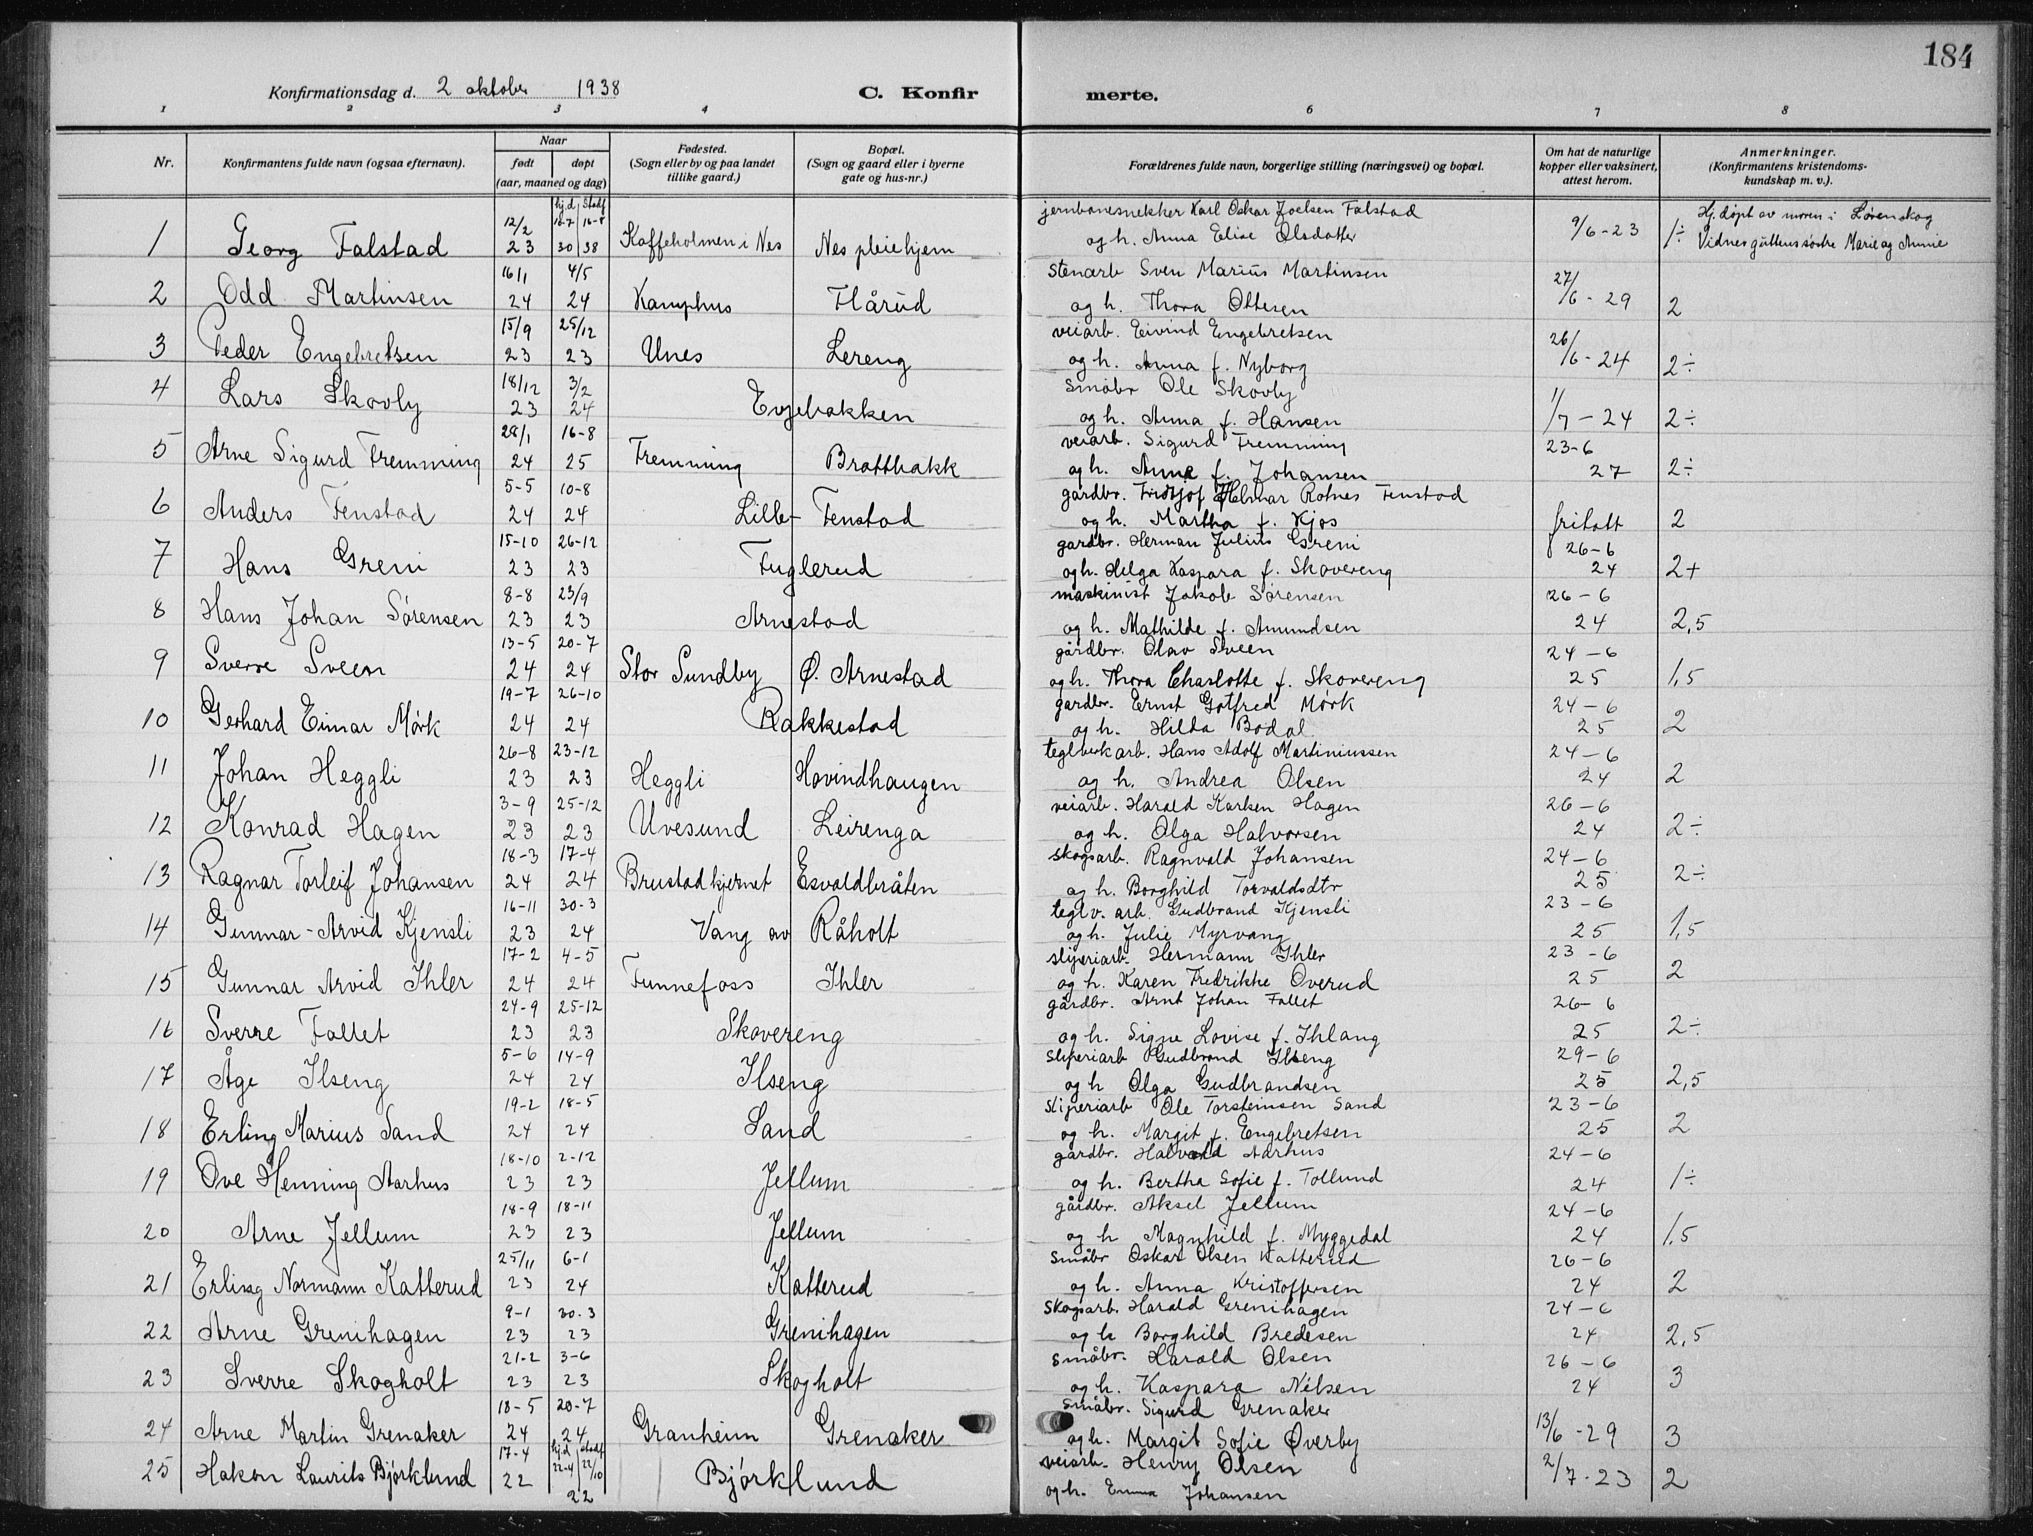 184
Konfirmationsdag d. 2 oktober 1938 C. Konfirmerte.
1 2 3 4 6 7 8
Nr. Konfirmantens fulde navn (ogsaa efternavn). Naar født døpt (aar, maaned og dag) Fødested. (Sogn eller by og paa landet tillike gaard.) Bopæl. (Sogn og gaard eller i byerne gate og hus-nr.) Forældrenes fulde navn, borgerlige stilling (næringsvei) og bopæl. Om hat de naturlige kopper eller vaksinert, attest herom. Anmerkninger. (Konfirmantens kristendoms-kundskap m. v.).
1 Georg Falstad 12/2 23 hj.d 16-7 30 Stadf 16-8 38 Kaffeholmen i Nes Nes pleiehjem jernbanesnekker Karl Oskar Joelsen Falstad
og h. Anna Elise Olsdatter 9/6-23 1÷ Hj.døpt av moren i Lørenskog
Vidner guttens søstre Marie og Annie
2 Odd Martinsen 16/1 24 4/5 24 Kamphus Hårud stenarb Sven Marius Martinsen
og h. Thora Ottesen 27/6-29 2
3 Peder Engebretsen 15/9 23 25/12 23 Unes Lereng veiarb. Eivind Engebretsen
og h. Anna f. Nyborg 26/6-24 2÷
4 Lars Skovly 18/12 23 3/2 24 Evjebakken småbr Ole Skovly
og h. Anna f. Hansen 1/7-24 2÷
5 Arne Sigurd Fremming 28/1 24 16-8 25 Fremming Brattbakk veiarb. Sigurd Fremming
og h. Anna f. Johansen 23-6 27 2÷
6 Anders Fenstad 5-5 24 10-8 24 Lille-Fenstad gardbr. Fridtjof Helmar Rotnes Fenstad
og h. Martha f. Kjos fritatt 2
7 Hans Greni 15-10 23 26-12 23 Fuglerud gardbr. Herman Julius Greni
og h. Helga Kaspara f. Skovereng 26-6 24 2+
8 Hans Johan Sørensen 8-8 23 23/9 23 Arnestad maskinist Jakob Sørensen
og h. Mathilde f. Amundsen 26-6 24 2,5
9 Sverre Sveen 13-5 24 20-7 24 Stor Sundby Ø. Arnestad gårdbr. Olav Sveen
og h. Thora Charlotte f. Skovereng 24-6 25 1,5
10 Gerhard Eimar Mørk 19-7 24 26-10 24 Rakkestad gardbr. Ernst Gotfred Mørk
og h. Hilda Bodal 24-6 25 2
11 Johan Heggli 26-8 23 23-12 23 Heggli Hovindhaugen teglverkarb. Hans Adolf Martiniussen
og h. Andrea Olsen 24-6 24 2
12 Konrad Hagen 3-9 23 25-12 23 Uvesund Leirenga veiarb. Harald Karlsen Hagen
og h. Olga Halvorsen 26-6 24 2÷
13 Ragnar Torleif Johansen 18-3 24 17-4 24 Brustadkjernet Esvaldbråten skogsarb. Ragnvald Johansen
og h. Borghild Torvaldsdtr 24-6 25 2÷
14 Gunnar-Arvid Kjensli 16-11 23 30-3 24 Vang av Råholt teglv. arb. Gudbrand Kjensli
og h. Julie Myrvang 23-6 25 1,5
15 Gunnar Arvid Ihler 17-2 24 4-5 24 Funnefoss Ihler sliperiarb. Hermann Ihler
og h. Karen Fredrikke Overud 23-6 25 2
16 Sverre Fallet 24-9 23 25-12 23 Skovereng gårdbr. Arnt Johan Fallet
og h. Signe Lovise f. Ihlang 26-6 25 2÷
17 Åge Ilseng 5-6 24 14-9 24 Ilseng sliperiarb Gudbrand Ilseng
og h Olga Gudbrandsen 29-6 25 2,5
18 Erling Marius Sand 19-2 24 18-5 24 Sand sliperiarb Ole Torsteinsen Sand
og h. Margit f. Engebretsen 23-6 25 2
19 Ove Henning Aarhus 18-10 23 2-12 23 Jellum gårdbr. Halvard Aarhus
og h. Bertha Sofie f. Tollund 24-6 24 1÷
20 Arne Jellum 18-9 23 18-11 23 Jellum gårdbr. Aksel Jellum
og h Magnhild f. Myggedal 24-6 24 1,5
21 Erling Normann Katterud 25/11 23 6-1 24 Katterud småbr Oskar Olsen Katterud
og h. Anna Kristoffersen 26-6 24 2
22 Arne Grenihagen 9-1 23 30-3 23 Grenihagen skogsarb. Harald Grenihagen
og h Borghild Bredesen 24-6 24 2,5
23 Sverre Skogholt 21-2 23 3-6 23 Skogholt småbr. Harald Olsen
og h. Kaspara Nilsen 26-6 24 3
24 Arne Martin Grenaker 18-5 24 20-7 24 Granheim Grenaker småbr. Sigurd Grenaker
og h. Margit Sofie Øverby 13/6-29 3
25 Håkon Laurits Bjørklund 17-4 22 hj.d 22-4 stadf 22/10 22 Bjørklund veiarb. Henry Olsen
og h. Emma Johansen 2/7-23 2